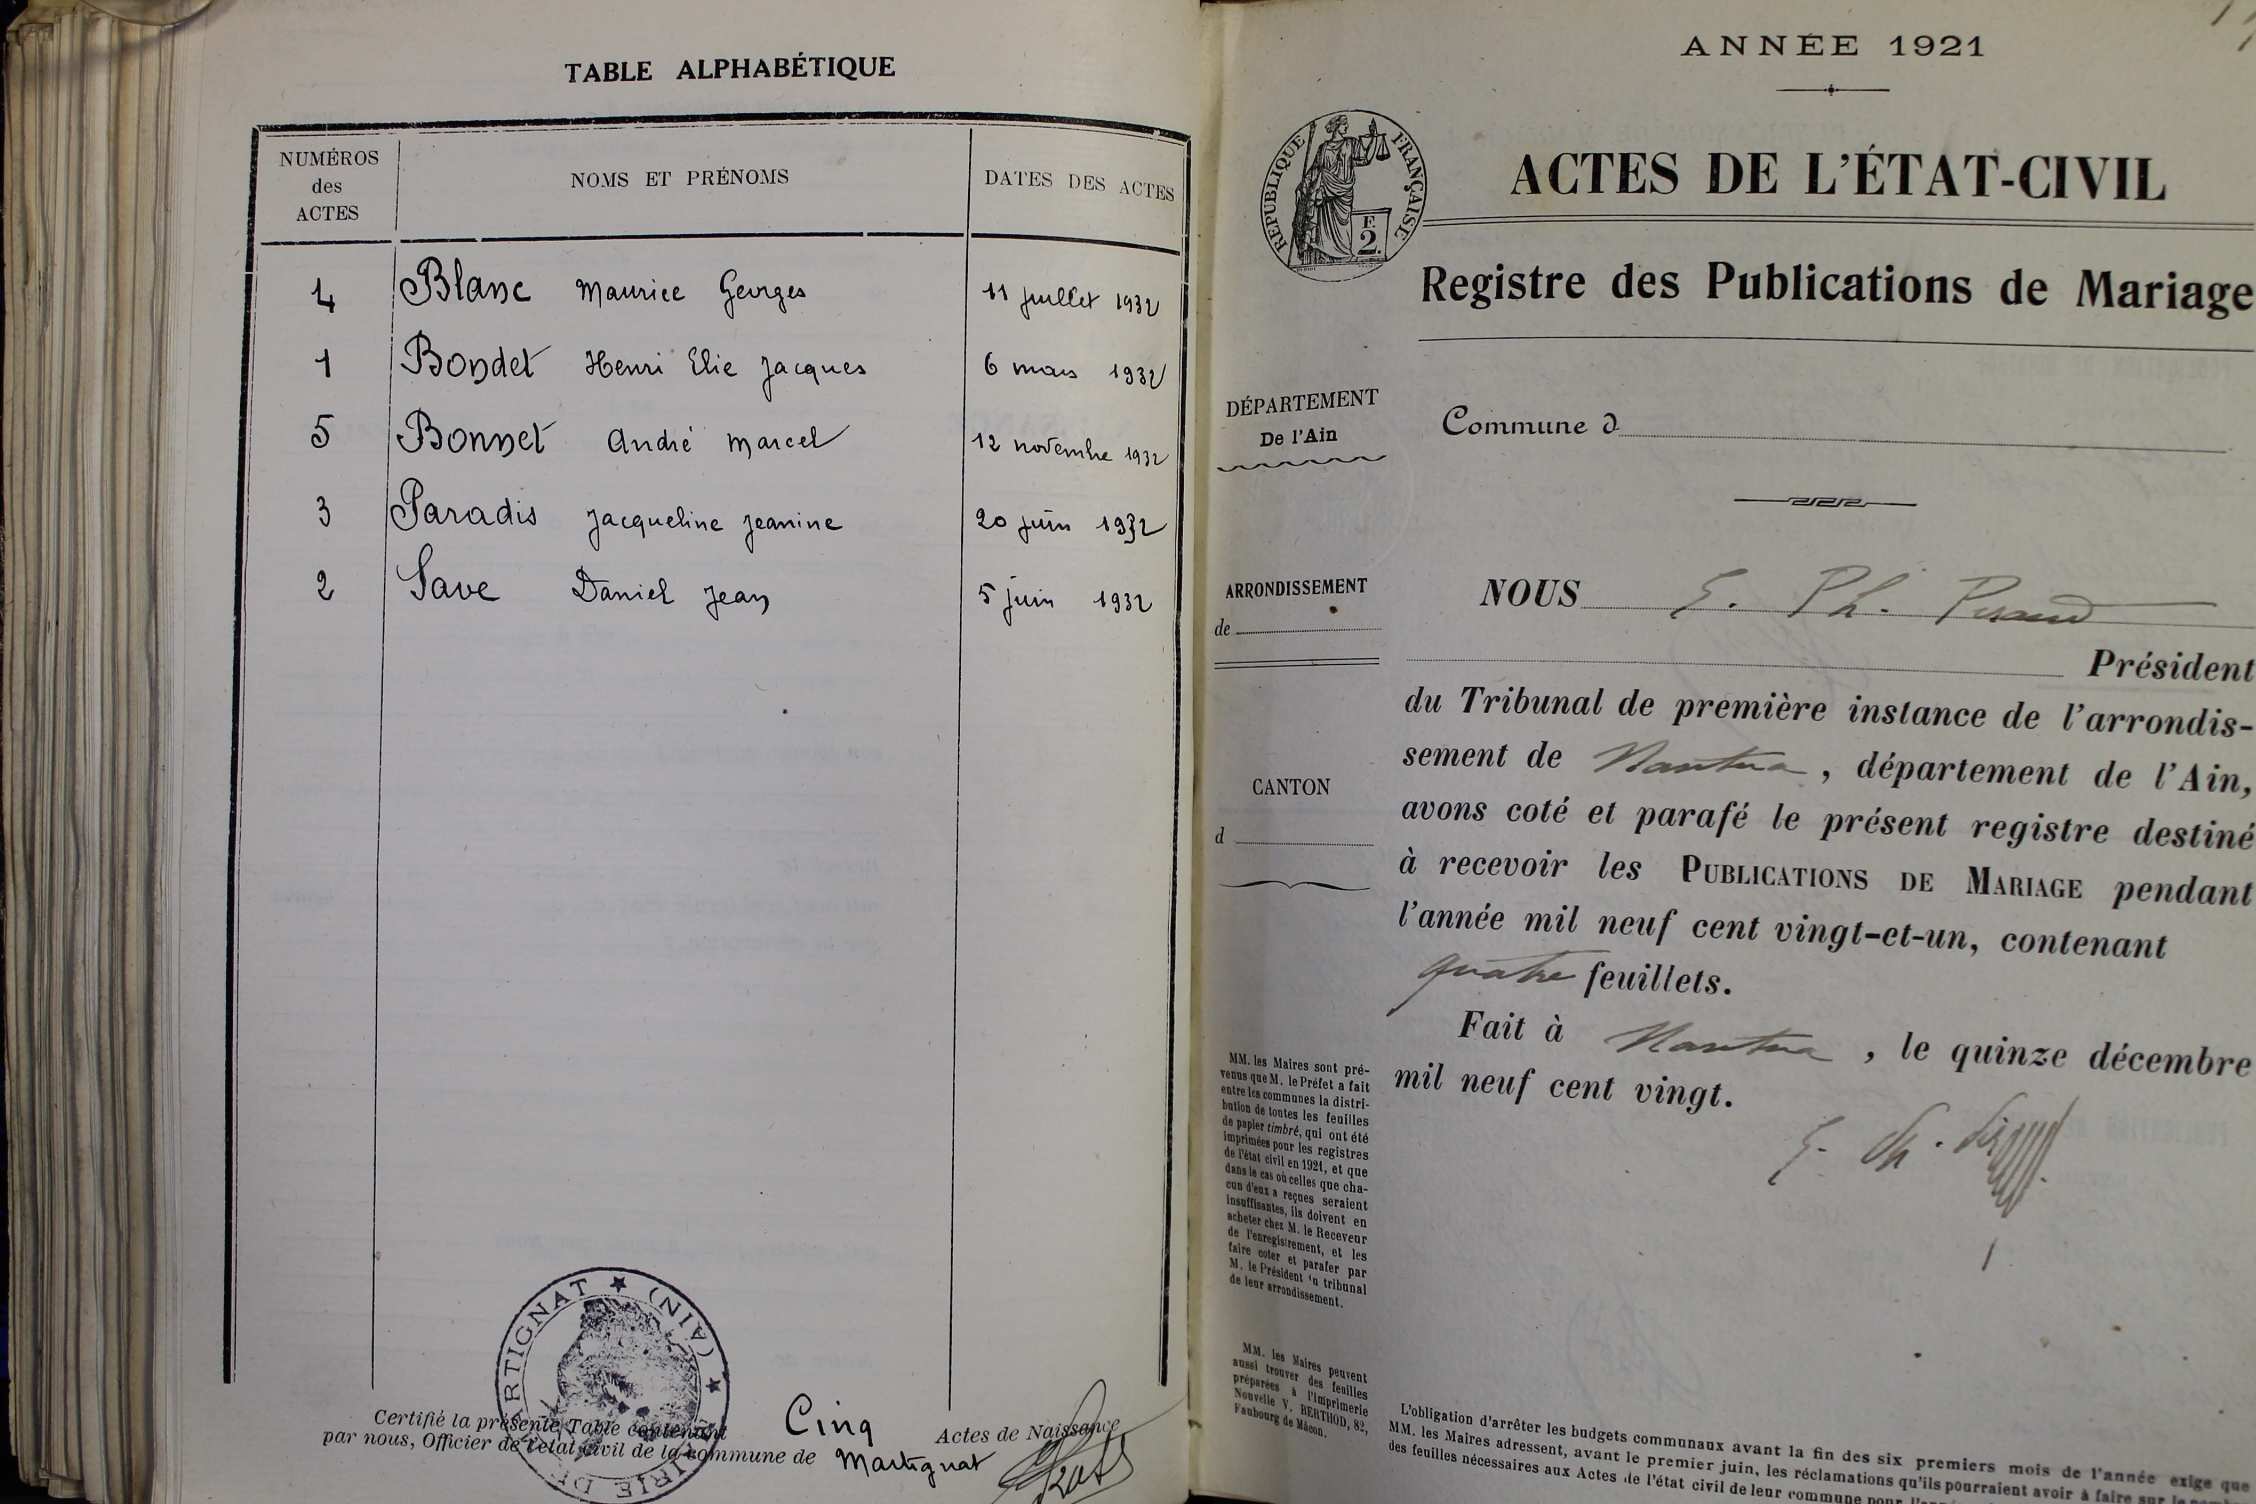 TABLE ALPHABÉTIQUE
NUMÉROS
des
ACTES
NOMS ET PRÉNOMS
DATES DES ACTES
4 Blanc Maurice Georges 11 juillet 1932
1 Bondet Henri Elie Jacques 6 mars 1932
5 Bonnet André Marcel 12 novembre 1932
3 Paradis Jacqueline Jeanine 20 juin 1932
2 Save Daniel Jean 5 juin 1932
Certifié la présente Table contenant Cinq Actes de Naissance
par nous, Officier de l'état civil de la commune de Martignat
MAIRIE DE MARTIGNAT ★ (AIN) ★
ANNÉE 1921
RÉPUBLIQUE FRANÇAISE
F.
2.
ACTES DE L'ÉTAT-CIVIL
Registre des Publications de Mariage
DÉPARTEMENT
De l'Ain
Commune d
ARRONDISSEMENT
de
CANTON
d
NOUS E. Ph.
Président
du Tribunal de première instance de l'arrondis-
sement de Nantua, département de l'Ain,
avons coté et parafé le présent registre destiné
à recevoir les PUBLICATIONS DE MARIAGE pendant
l'année mil neuf cent vingt-et-un, contenant
quatre feuillets.
Fait à Nantua, le quinze décembre
mil neuf cent vingt.
E. Ph.
1
MM. les Maires sont pré-
venus que M. le Préfet a fait
entre les communes la distri-
bution de toutes les feuilles
de papier timbré, qui ont été
imprimées pour les registres
de l'état civil en 1921, et que
dans le cas où celles que cha-
cun d'eux a reçues seraient
insuffisantes, ils doivent en
acheter chez M. le Receveur
de l'enregistrement, et les
faire coter et parafer par
M. le Président du tribunal
de leur arrondissement.
MM. les Maires peuvent
aussi trouver des feuilles
préparées à l'Imprimerie
Nouvelle V. BERTHOD, 82,
Faubourg de Mâcon.
L'obligation d'arrêter les budgets communaux avant la fin des six premiers mois de l'année exige que
MM. les Maires adressent, avant le premier juin, les réclamations qu'ils pourraient avoir à faire sur
des feuilles nécessaires aux Actes de l'état civil de leur commune pour